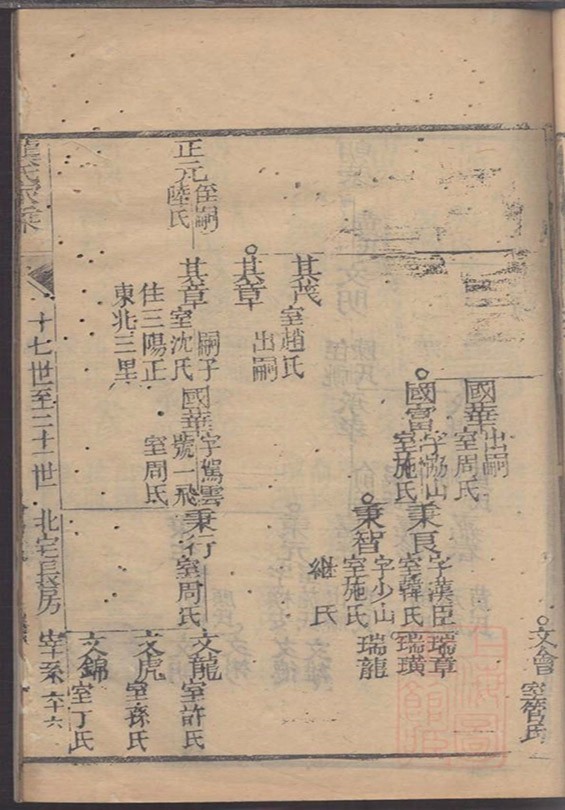 文會
室管氏
國華
出嗣
室周氏
國富
字協山
室施氏
秉良
字漢臣
室韓氏
瑞章
瑞璜
秉智
字少山
室施氏
繼 氏
瑞龍
其茂
室趙氏
其章
出嗣
正元
侄嗣
陸氏
其章
嗣子
室沈氏
住三陽正
東北三里
國華
字駕雲
號一飛
室周氏
秉行
室周氏
文龍
室許氏
文虎
室孫氏
文錦
室丁氏
氏家乘
十七世至二十一世
北宅長房
宰系
六十六